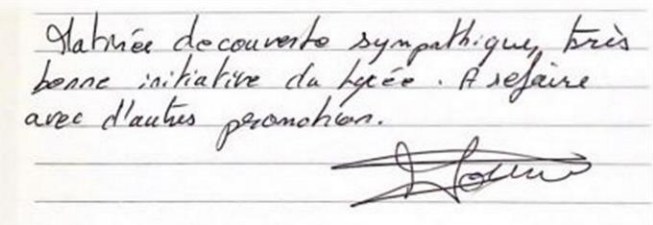 Matinée decouverte sympathique, très
bonne initiative du lycée. A refaire
avec d'autres promotion.